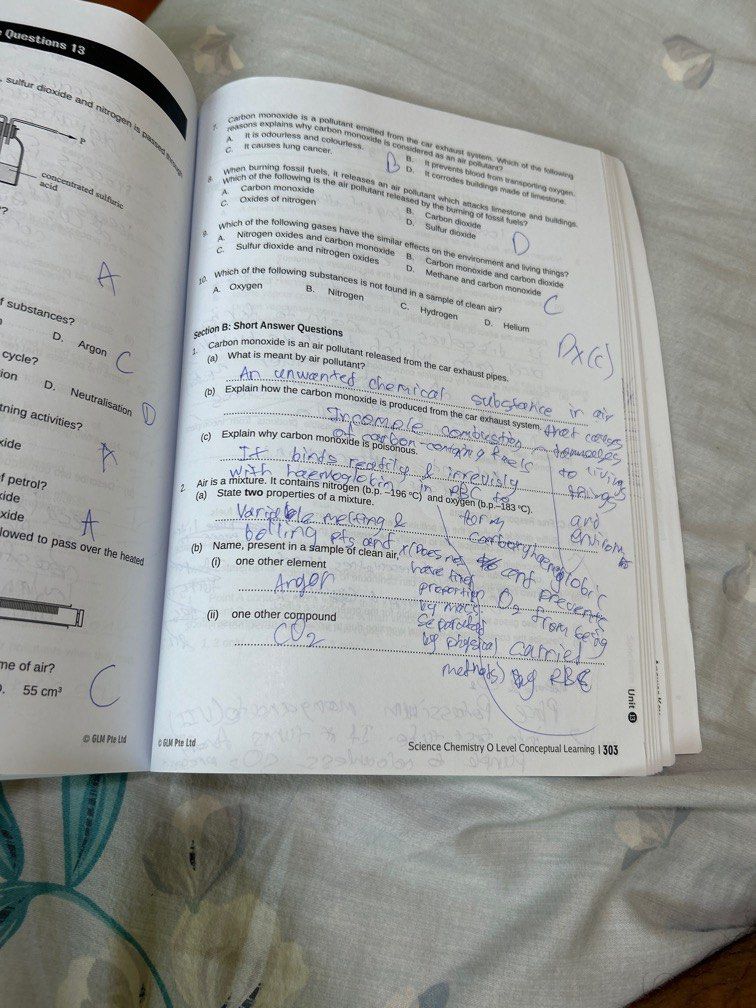 Questions 13
sulfur dioxide and nitrogen is passed through
P
concentrated sulfuric
acid
?
A
f substances?
D. Argon
C
cycle?
ion
D. Neutralisation
D
ning activities?
kide
A
f petrol?
kide
xide
A
lowed to pass over the heated
me of air?
55 cm³
C
© GLM Pte Ltd
7. Carbon monoxide is a pollutant emitted from the car exhaust system. Which of the following
reasons explains why carbon monoxide is considered as an air pollutant?
A. It is odourless and colourless.
B. It prevents blood from transporting oxygen.
C. It causes lung cancer.
D. It corrodes buildings made of limestone.
B
8. When burning fossil fuels, it releases an air pollutant which attacks limestone and buildings.
Which of the following is the air pollutant released by the burning of fossil fuels?
A. Carbon monoxide
B. Carbon dioxide
C. Oxides of nitrogen
D. Sulfur dioxide
D
9. Which of the following gases have the similar effects on the environment and living things?
A. Nitrogen oxides and carbon monoxide
B. Carbon monoxide and carbon dioxide
C. Sulfur dioxide and nitrogen oxides
D. Methane and carbon monoxide
C
10. Which of the following substances is not found in a sample of clean air?
A. Oxygen
B. Nitrogen
C. Hydrogen
D. Helium
Dx(C)
Section B: Short Answer Questions
1. Carbon monoxide is an air pollutant released from the car exhaust pipes.
(a) What is meant by air pollutant?
An unwanted chemical substance in air
that causes
to living
things
and
(b) Explain how the carbon monoxide is produced from the car exhaust system.
combustion
of carbon-
fuels
(c) Explain why carbon monoxide is poisonous.
It binds readily &
with haemoglobin in RBC to
form
and prevent
O₂ from being
carried
by RBC
2. Air is a mixture. It contains nitrogen (b.p. –196 °C) and oxygen (b.p.–183 °C).
(a) State two properties of a mixture.
Variable melting &
boiling pts and
x(Does not
have fixed
proportion
by mass
by physical
methods)
(b) Name, present in a sample of clean air,
(i) one other element
Argon
(ii) one other compound
CO₂
Unit 13
© GLM Pte Ltd
Science Chemistry O Level Conceptual Learning | 303